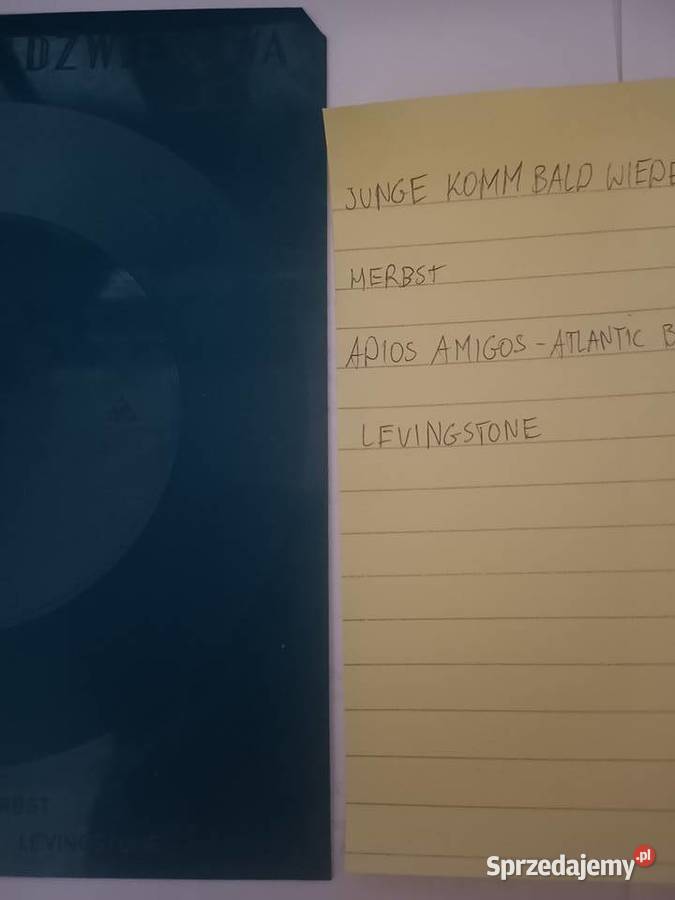 JUNGE KOMM BALD WIEDE
HERBST
ADIOS AMIGOS - ATLANTIC B
LEVINGSTONE
RBST
Sprzedajemy.pl